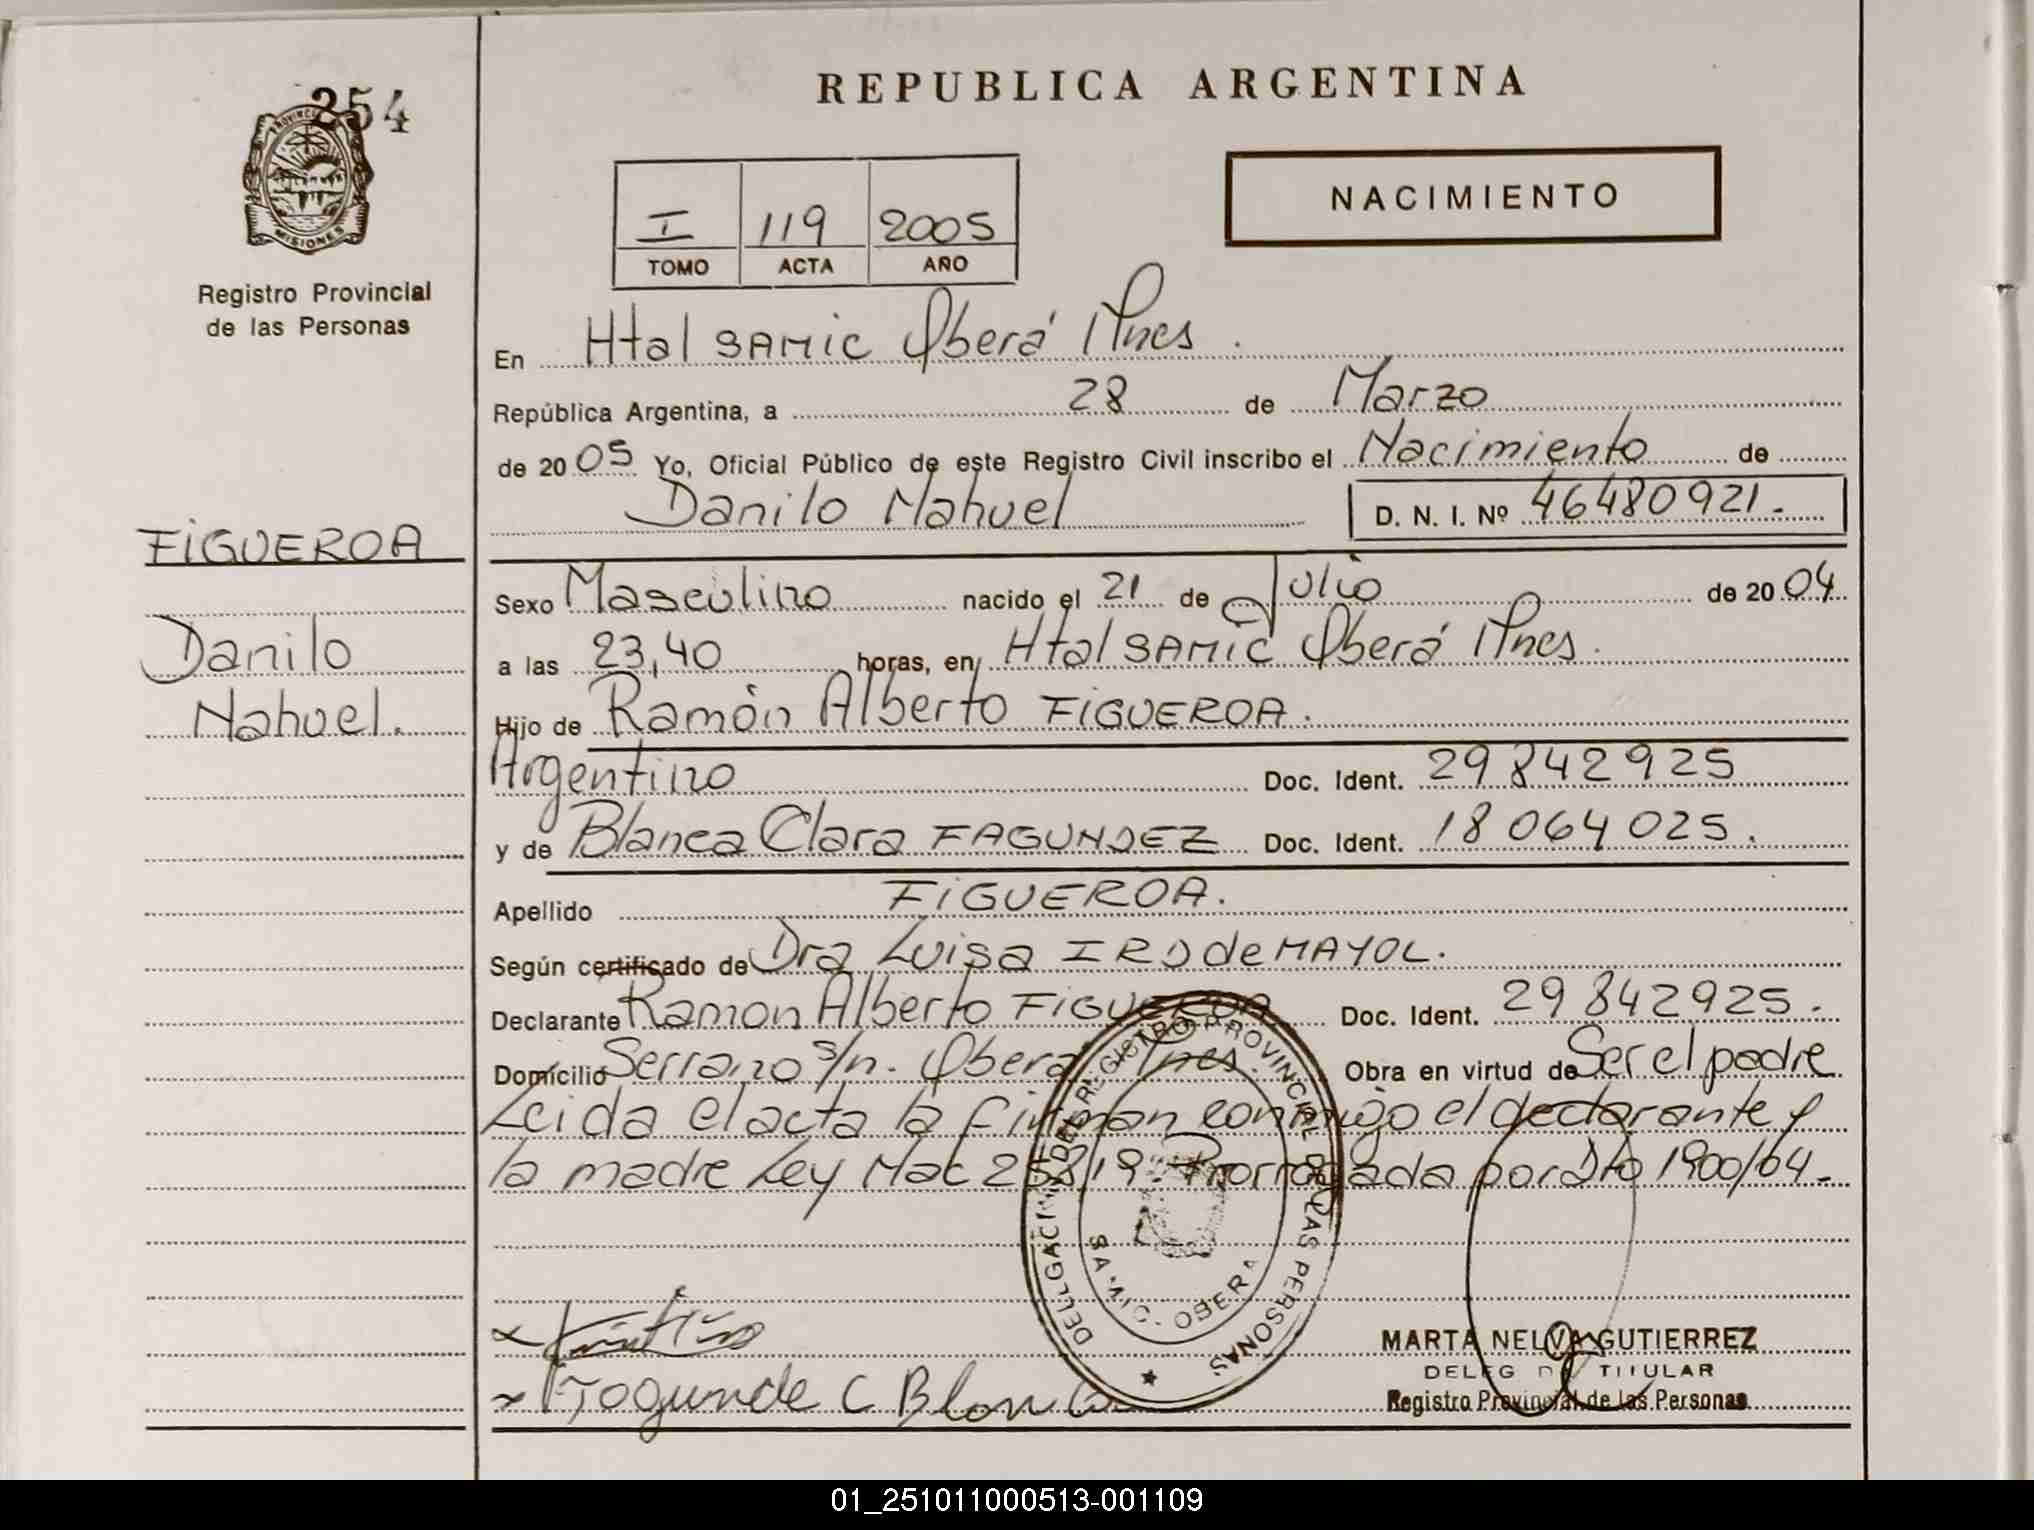 254
PROVINCIA
MISIONES
Registro Provincial
de las Personas
FIGUEROA
Danilo
Nahuel.
REPUBLICA ARGENTINA
NACIMIENTO
I 119 2005
TOMO ACTA AÑO
En Htal SAMIC Oberá Mnes.
República Argentina, a 28 de Marzo
de 2005 Yo, Oficial Público de este Registro Civil inscribo el Nacimiento de
Danilo Nahuel D. N. I. Nº 46480921.
Sexo Masculino nacido el 21 de Julio de 2004
a las 23,40 horas, en Htal SAMIC Oberá Mnes.
Hijo de Ramón Alberto FIGUEROA.
Argentino Doc. Ident. 29842925
y de Blanca Clara FAGUNDEZ Doc. Ident. 18064025.
Apellido FIGUEROA.
Según certificado de Dra Luisa IRD de MAYOL.
Declarante Ramon Alberto FIGUEROA Doc. Ident. 29842925.
Domicilio Serrano s/n. Oberá Mnes. Obra en virtud de Ser el padre
Leida el acta la firman conmigo el declarante y
la madre Ley Nac 25819. Prorrogada por Dto 1900/04.
DELEGACION DEL REGISTRO PROVINCIAL DE LAS PERSONAS
SAMIC - OBERA
Fagunde C Blanca
MARTA NELVA GUTIERREZ
DELEG TITULAR
Registro Provincial de las Personas
01_251011000513-001109